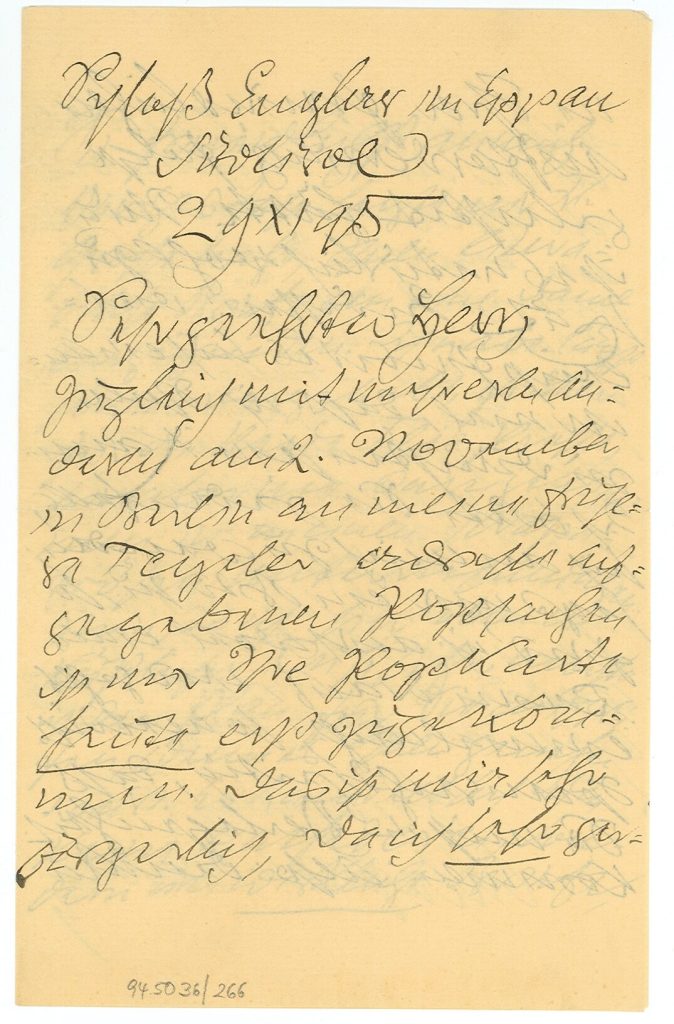 Schloß Englar in Eppan
Südtirol
29 XI 95
Sehr geehrter Herr,
zugleich mit mehreren an=
deren am 2. November
in Berlin an meine frühe=
re Tegeler Adresse auf=
gegebenen Postsachen
ist mir Ihre Postkarte
heute erst zugekom=
men. Das ist mir sehr
ärgerlich, da ich sehr ger=
945036/266